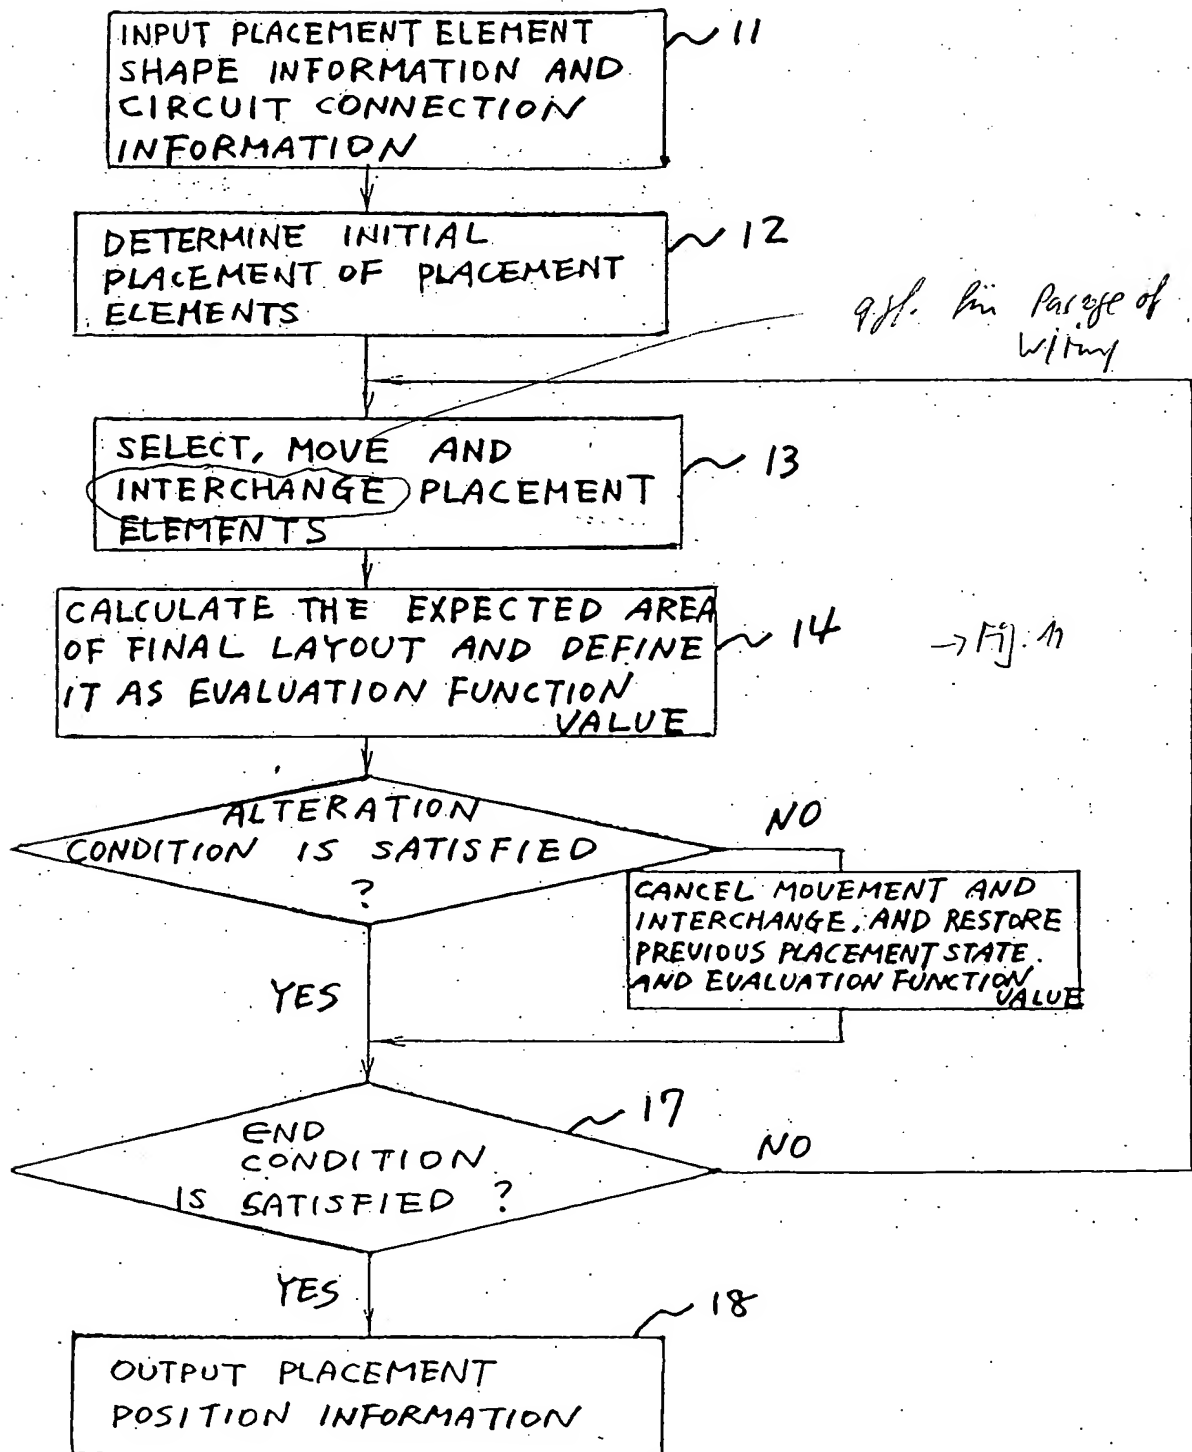 INPUT PLACEMENT ELEMENT
SHAPE INFORMATION AND
CIRCUIT CONNECTION
INFORMATION
11
DETERMINE INITIAL
PLACEMENT OF PLACEMENT
ELEMENTS
12
of
SELECT, MOVE AND
INTERCHANGE PLACEMENT
ELEMENTS
13
CALCULATE THE EXPECTED AREA
OF FINAL LAYOUT AND DEFINE
IT AS EVALUATION FUNCTION
VALUE
14
→ Fig. 11
ALTERATION
CONDITION IS SATISFIED
?
NO
CANCEL MOVEMENT AND
INTERCHANGE, AND RESTORE
PREVIOUS PLACEMENT STATE
AND EVALUATION FUNCTION
VALUE
YES
17
END
CONDITION
IS SATISFIED ?
NO
YES
18
OUTPUT PLACEMENT
POSITION INFORMATION